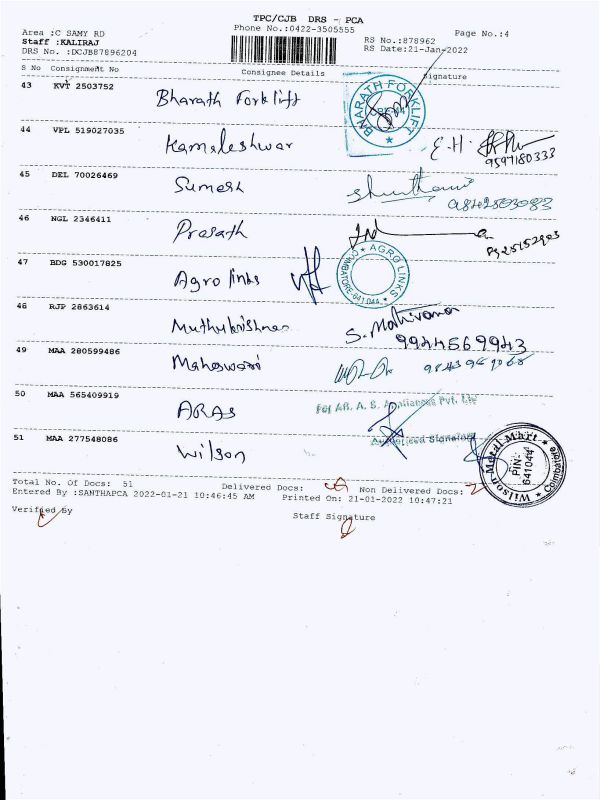 TPC/CJB DRS - PCA
Phone No.:0422-3505555
Area :C SAMY RD
Page No.:4
Staff :KALIRAJ
RS No.:878962
DRS No. :DCJB87896204
RS Date:21-Jan-2022
S No Consignment No Consignee Details Signature
43 KVT 2503752 Bharath Forklift
BHARATH FORKLIFT
44 VPL 519027035 Kamaleshwar E.H.
9597180333
45 DEL 70026469 Sumesh
9842803083
46 NGL 2346411 Prasath
47 BDG 530017825 Agro links
AGRO LINKS
COIMBATORE-641 044
48 RJP 2863614 Muthukrishnan S. Mathivanan
9944569943
49 MAA 280599486 Maheswari
50 MAA 565409919 ARAS
For AR. A. S. Appliances Pvt. Ltd
Authorised Signatory
51 MAA 277548086 Wilson
Wilson Metal Mart
PIN-
641044
Coimbatore
Total No. Of Docs: 51 Delivered Docs: Non Delivered Docs:
Entered By :SANTHAPCA 2022-01-21 10:46:45 AM Printed On: 21-01-2022 10:47:21
Verified By Staff Signature